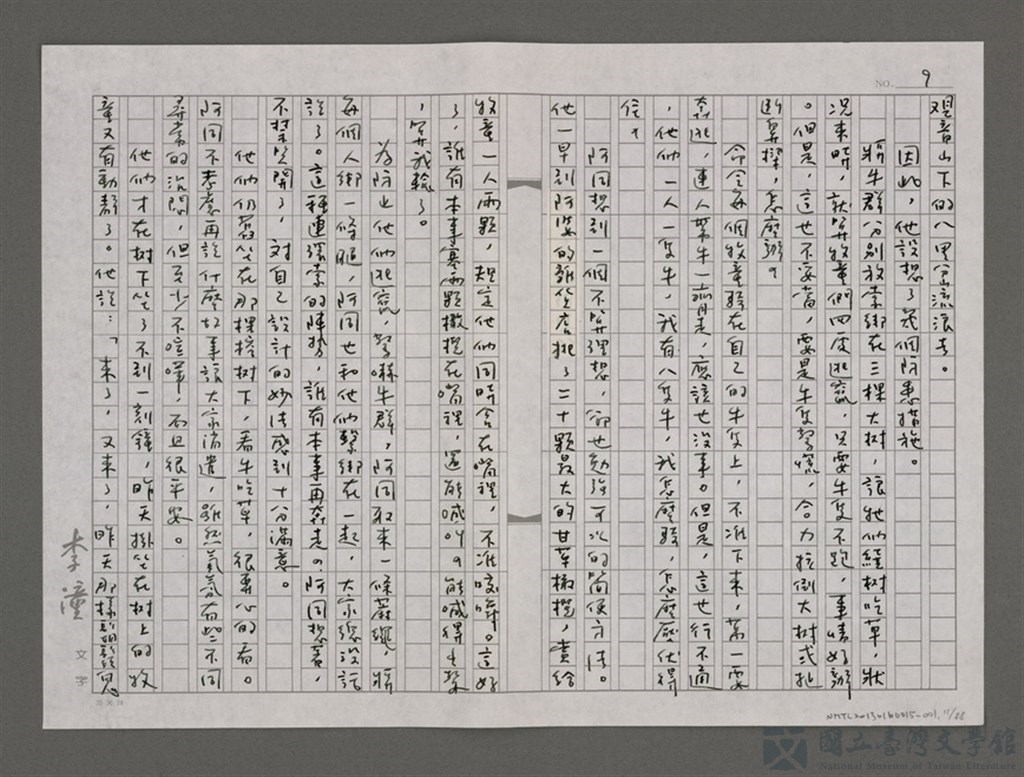 NO. 9
觀音山下的八里坌流浪去。
因此,他設想了幾個防患措施。
將牛群分別放索綁在三棵大樹,讓牠們繞樹吃草,狀
況來時,就算牧童們四皮逃竄,只要牛隻不跑,事情好辦
。但是,這也不妥當,要是牛隻驚慌,合力拉倒大樹或扯
斷鼻樑,怎麼辦?
命令每個牧童騎在自己的牛隻上,不准下來,萬一要
奔逃,連人帶牛一齊走,應該也沒事。但是,這也行不通
,他們一人一隻牛,我有八隻牛,我怎麼騎,怎麼壓伏得
住?
阿同想到一個不算理想,卻也勉強可以的簡便方法。
他一早到阿婆的雜貨店挑了二十顆最大的甘草橄欖,賞給
牧童一人兩顆,規定他們同時含在嘴裡,不准咬碎。這好
了,誰有本事塞兩顆橄欖在嘴裡,還能喊叫?能喊得出聲
,算我輸了。
為防止他們逃竄,驚嚇牛群,阿同取來一條麻繩,將
每個人綁一條腿,阿同也和他們繫綁在一起,大家總沒話
說了。這種連環索的陣勢,誰有本事再奔走?阿同想著,
不禁笑開了,對自己設計的妙法感到十分滿意。
他們仍舊坐在那棵榕樹下,看牛吃草,很專心的看。
阿同不考慮再說什麼故事讓大家消遣,雖然氣氛有些不同
尋常的沉悶,但至少不喧嘩,而且很平安。
他們才在樹下坐了不到一刻鐘,昨天掛坐在樹上的牧
童又有動靜了。他說:「來了,又來了,昨天那樣鬍鬍鬼
李潼
文字
NMTL20130160015-001, 11/28
國立臺灣文學館
National Museum of Taiwan Literature